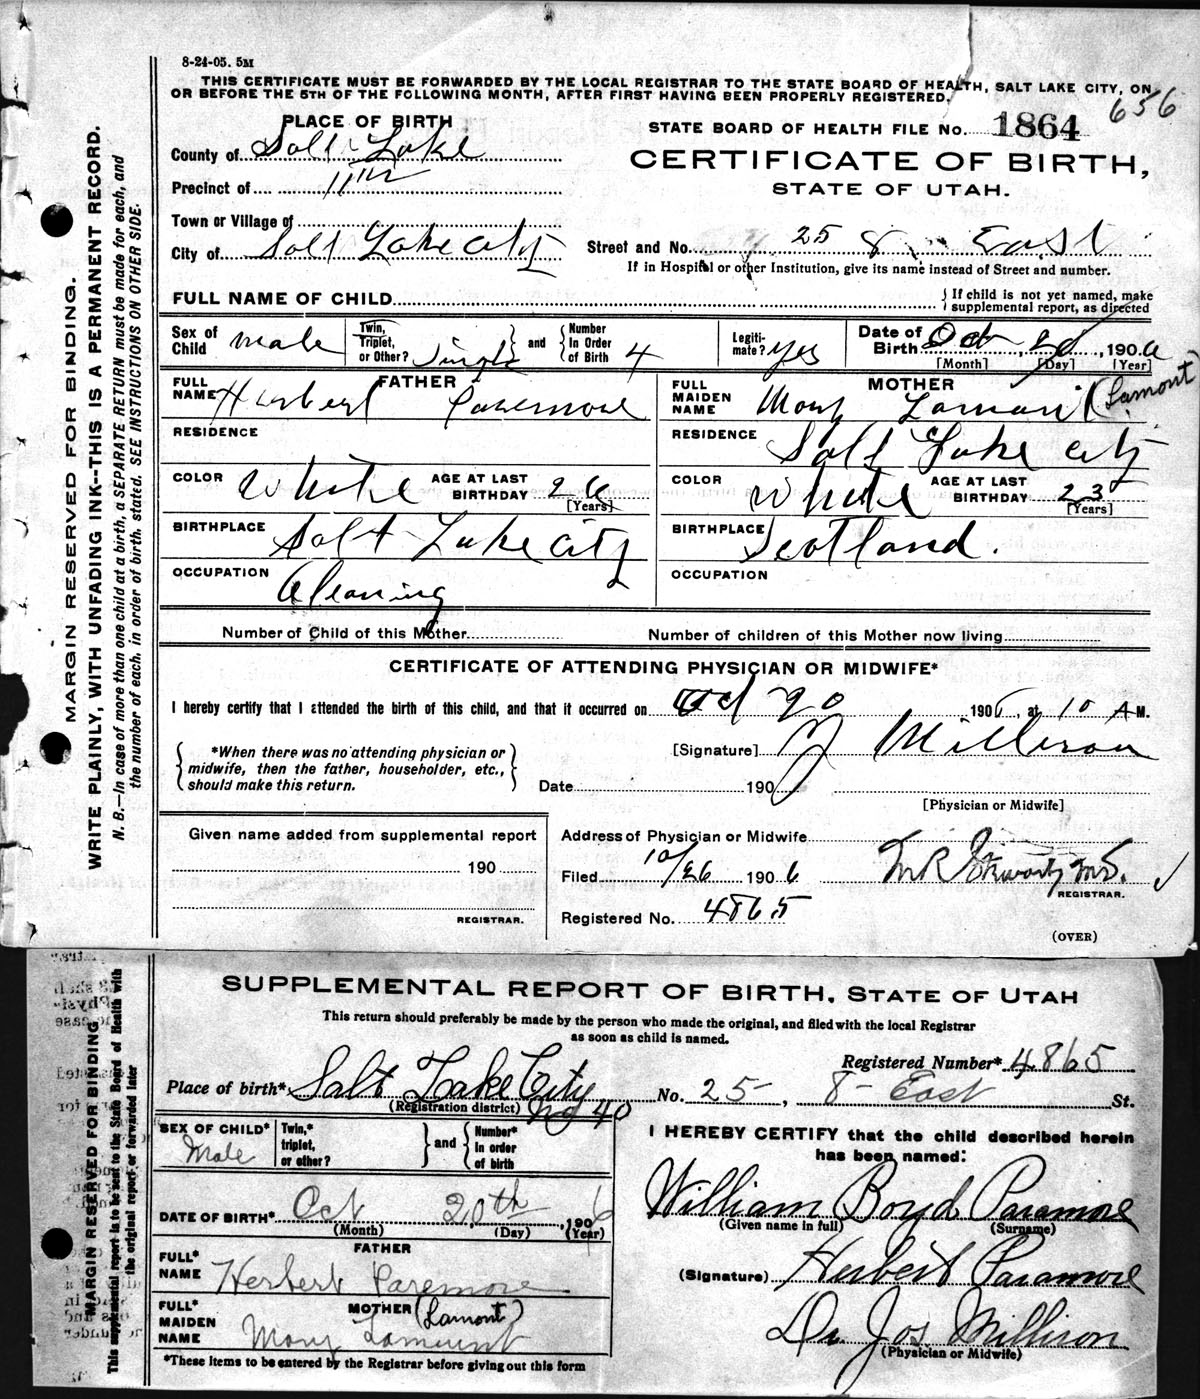 8-24-05. 5M
THIS CERTIFICATE MUST BE FORWARDED BY THE LOCAL REGISTRAR TO THE STATE BOARD OF HEALTH, SALT LAKE CITY, ON
OR BEFORE THE 5TH OF THE FOLLOWING MONTH, AFTER FIRST HAVING BEEN PROPERLY REGISTERED.
656
PLACE OF BIRTH
STATE BOARD OF HEALTH FILE No. 1864
County of Salt Lake
CERTIFICATE OF BIRTH,
Precinct of 11th
STATE OF UTAH.
Town or Village of
City of Salt Lake City
Street and No. 25 8 East
If in Hospital or other Institution, give its name instead of Street and number.
FULL NAME OF CHILD
If child is not yet named, make
supplemental report, as directed
Sex of Child male
Twin, Triplet, or Other? Single and Number In Order of Birth 4
Legitimate? yes
Date of Birth Oct, 20, 1906
[Month] [Day] [Year]
FATHER
FULL NAME Herbert Paremore
RESIDENCE
COLOR White AGE AT LAST BIRTHDAY 26
[Years]
BIRTHPLACE Salt Lake City
OCCUPATION Cleaning
MOTHER
FULL MAIDEN NAME Mary (Lamont)
RESIDENCE Salt Lake City
COLOR White AGE AT LAST BIRTHDAY 23
[Years]
BIRTHPLACE Scotland.
OCCUPATION
Number of Child of this Mother
Number of children of this Mother now living
CERTIFICATE OF ATTENDING PHYSICIAN OR MIDWIFE*
I hereby certify that I attended the birth of this child, and that it occurred on Oct 20 1906, at 10 A M.
*When there was no attending physician or
midwife, then the father, householder, etc.,
should make this return.
[Signature] J Millison
Date 190
[Physician or Midwife]
Given name added from supplemental report
190
REGISTRAR.
Address of Physician or Midwife
Filed 10/26 1906
REGISTRAR.
Registered No. 4865
(OVER)
MARGIN RESERVED FOR BINDING.
WRITE PLAINLY, WITH UNFADING INK--THIS IS A PERMANENT RECORD.
N. B.—In case of more than one child at a birth, a SEPARATE RETURN must be made for each, and
the number of each, in order of birth, stated. SEE INSTRUCTIONS ON OTHER SIDE.
SUPPLEMENTAL REPORT OF BIRTH, STATE OF UTAH
This return should preferably be made by the person who made the original, and filed with the local Registrar
as soon as child is named.
Registered Number* 4865
Place of birth* Salt Lake City No. 25, 8 East St.
(Registration district) No 40
SEX OF CHILD* Male
Twin,* triplet, or other? and Number* In order of birth
DATE OF BIRTH* Oct 20th, 1906
(Month) (Day) (Year)
FATHER
FULL* NAME Herbert Paremore
MOTHER (Lamont)
FULL* MAIDEN NAME Mary Lamount
*These Items to be entered by the Registrar before giving out this form
I HEREBY CERTIFY that the child described herein
has been named:
William Boyd Paramore
(Given name in full) (Surname)
(Signature) Herbert Paramore
Dr. Jos Millison
(Physician or Midwife)
MARGIN RESERVED FOR BINDING
This supplemental report is to be sent to the State Board of Health with
the original report or forwarded later